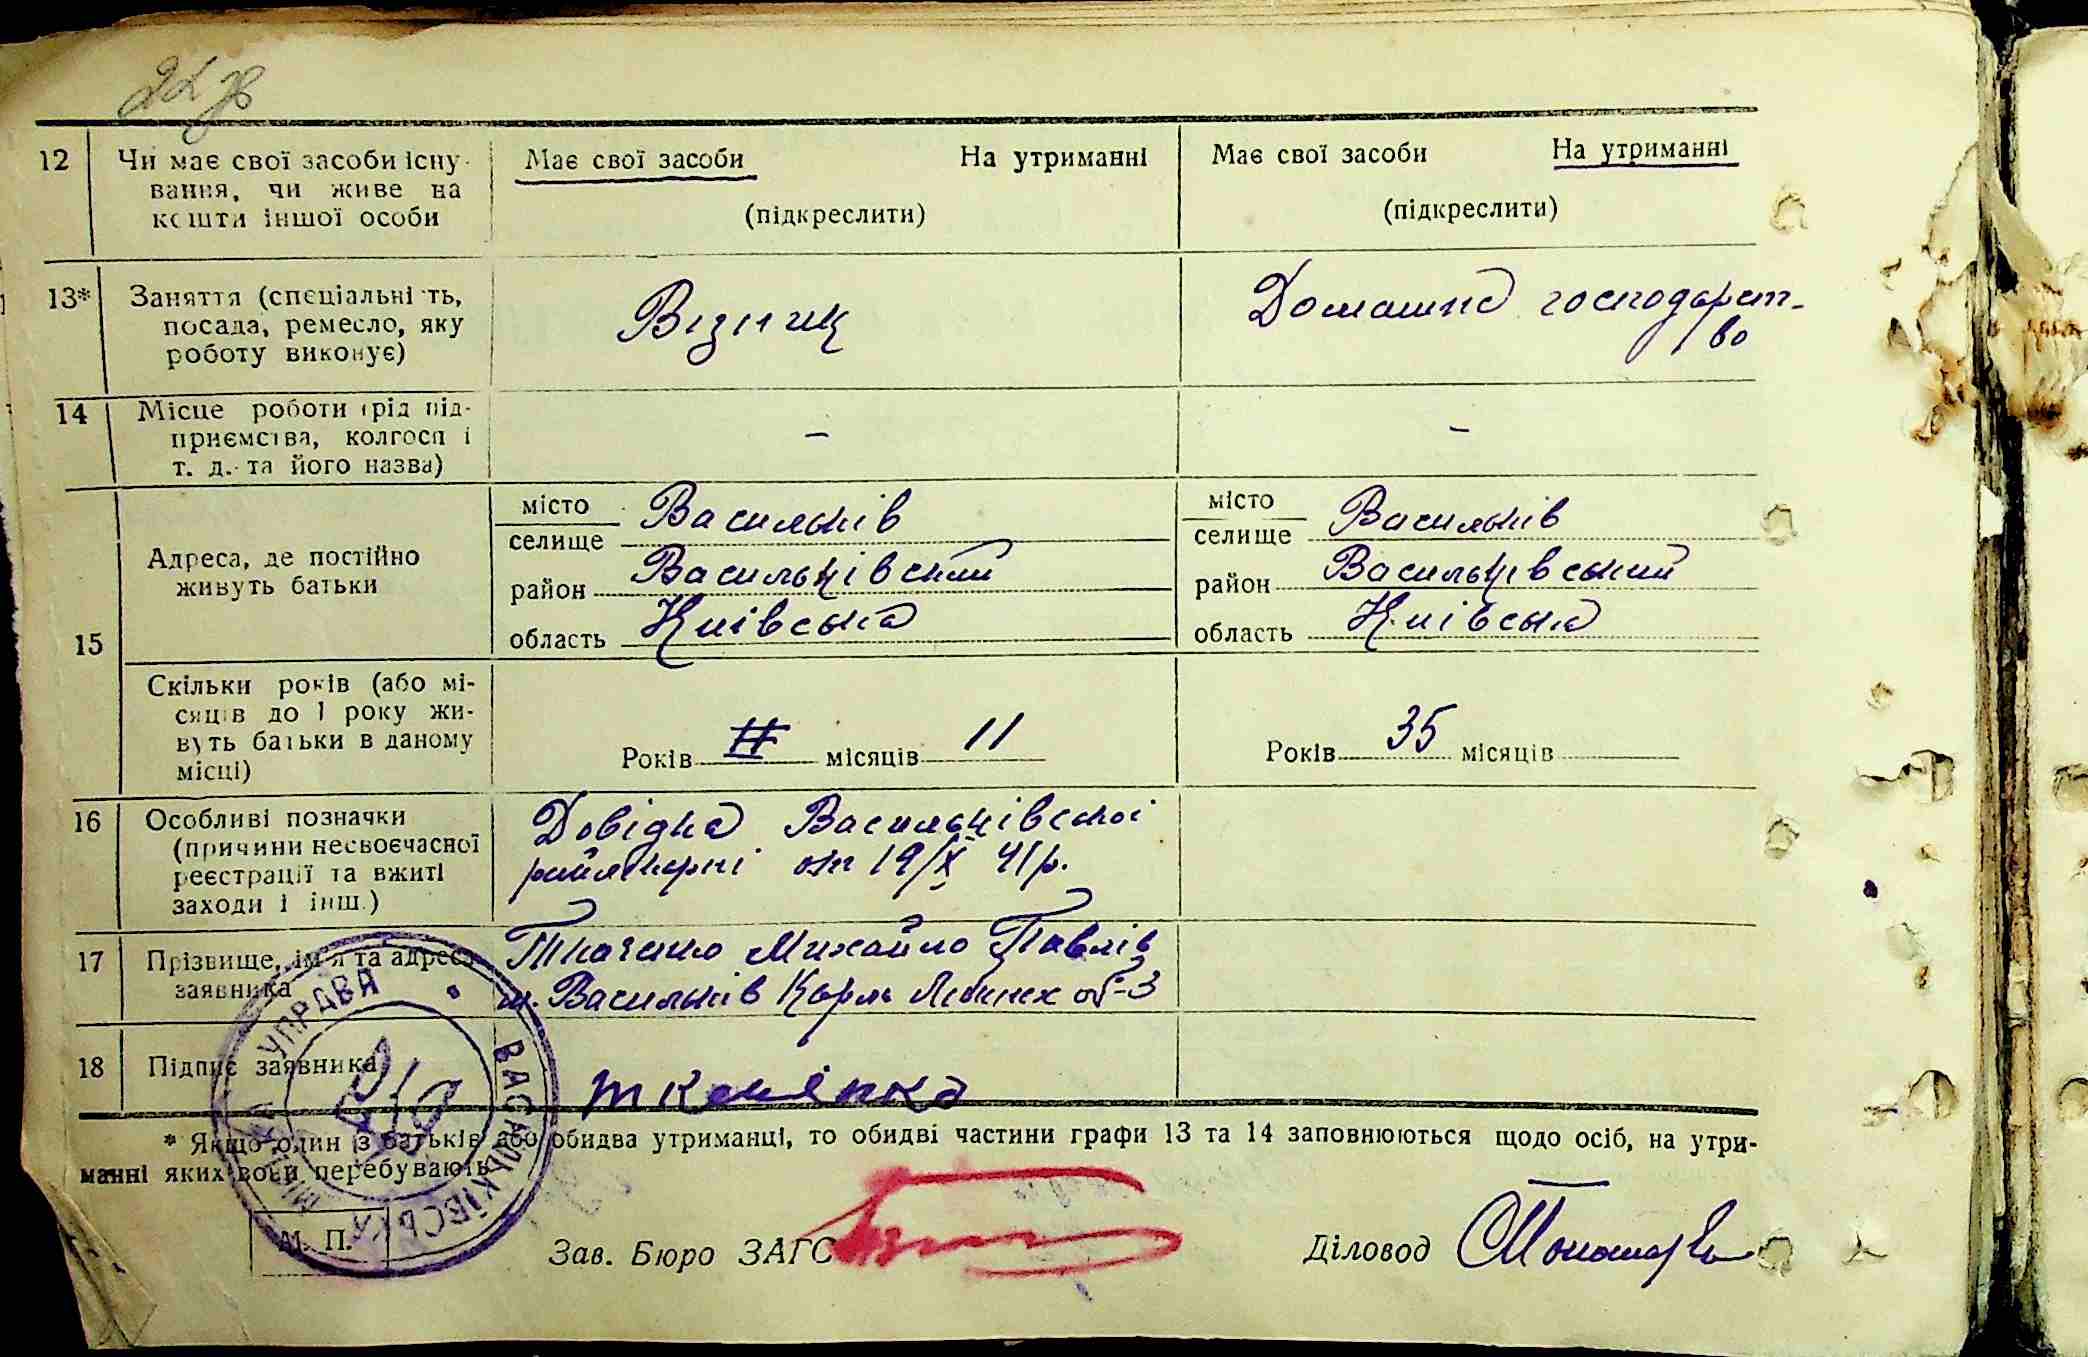 22 зв
12 Чи має свої засоби існу-
вання, чи живе на
кошти іншої особи
Має свої засоби На утриманні
(підкреслити)
Має свої засоби На утриманні
(підкреслити)
13* Заняття (спеціальність,
посада, ремесло, яку
роботу виконує)
Візник
Домашнє господарст-
во
14 Місце роботи (рід під-
приємства, колгосп і
т. д. та його назва)
–
–
15 Адреса, де постійно
живуть батьки
місто Васильків
селище
район Васильківский
область Київська
місто Васильків
селище
район Васильківський
область Київська
Скільки років (або мі-
сяців до 1 року жи-
вуть батьки в даному
місці)
Років місяців 11
Років 35 місяців
16 Особливі позначки
(причини несвоєчасної
реєстрації та вжиті
заходи і інш.)
Довідка Васильківської
от 19/X 41р.
17 Прізвище, ім'я та адреса
заявника
Ткаченко Михайло Павлів
м. Васильків Карль Лібкнех 3
18 Підпис заявника
* Якщо один із батьків або обидва утриманці, то обидві частини графи 13 та 14 заповнюються щодо осіб, на утри-
манні яких вони перебувають.
ВАСИЛЬКІВСЬКА МІСЬКА УПРАВА
М. П.
Зав. Бюро ЗАГС
Діловод